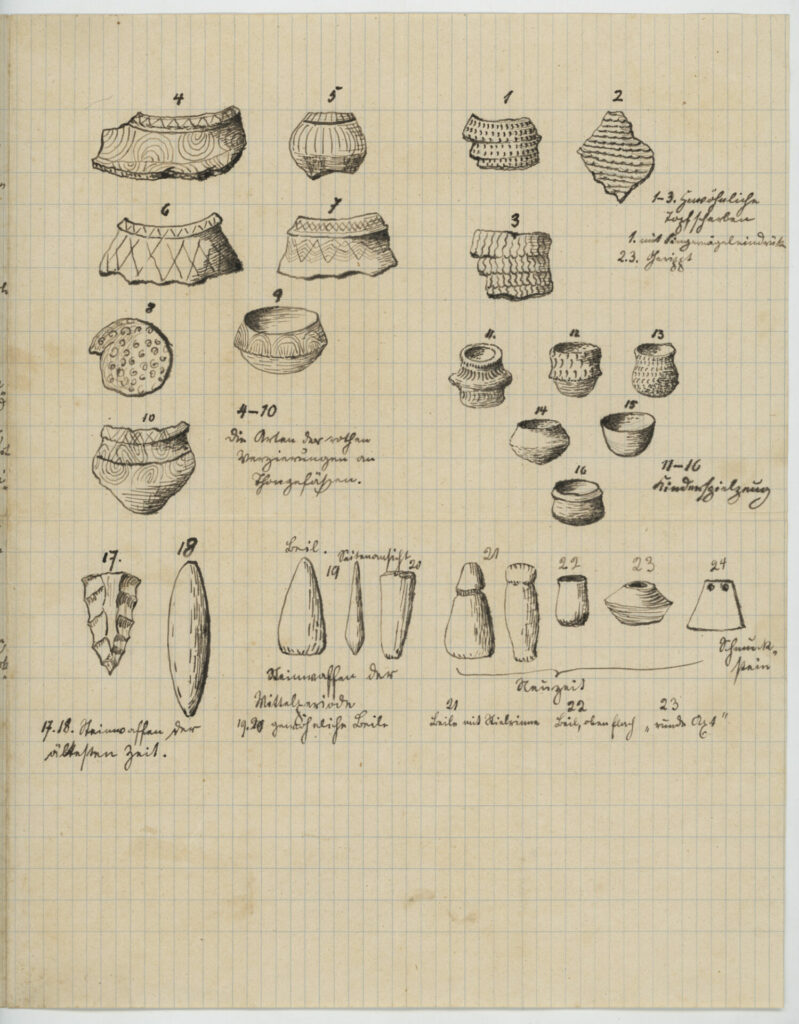 4 5 1 2
1-3. Gewöhnliche
Topfscherben
1. mit Fingernägeleindrücken
2.3. Gerippt
6 7 3
8 9
11. 12 13
10
4-10
die Arten der rothen
Verzierungen an
Thongefässen.
14 15
16
11-16
Kinderspielzeug
17. 18
Beil. Seitenansicht
19 20
21 22 23 24
Schmuck-
stein
Steinwaffen der
Mittelperiode
19.20 gewöhnliche Beile
Neuzeit
21 22 23
Beile mit Stielrinne Beil, oben flach „runde Axt"
17.18. Steinwaffen der
ältesten Zeit.